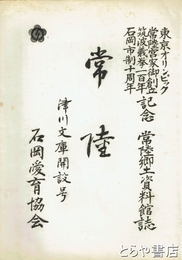 東京オリンピック
常陸宮家御創立
筑波義挙百年
石岡市制十周年
記念 常陸郷土資料館誌
常陸
津川文庫開設号
石岡愛育協会
とらや書店